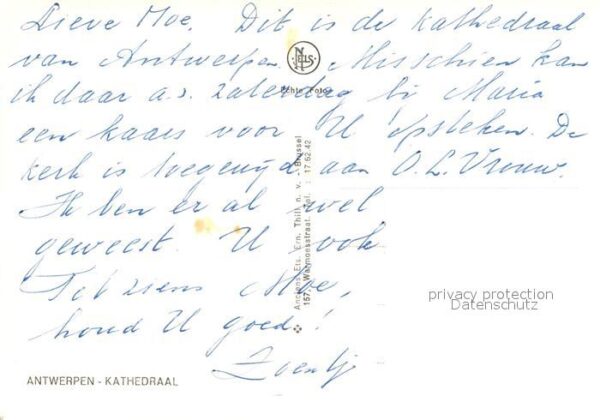 Lieve Moe, Dit is de kathedraal
van Antwerpen. Misschien kan
ik daar a.s. zaterdag bij Maria
een kaars voor U opsteken. De
kerk is toegewijd aan O. L. Vrouw.
Ik ben er al wel
geweest. U ook
Tot ziens Moe,
houd U goed!
Zoentj
NELS
Echte Foto
Anciens Ets. Ern. Thill n. v. - Brussel
157, Warmoesstraat. Tel. : 17 62.42
privacy protection
Datenschutz
ANTWERPEN - KATHEDRAAL